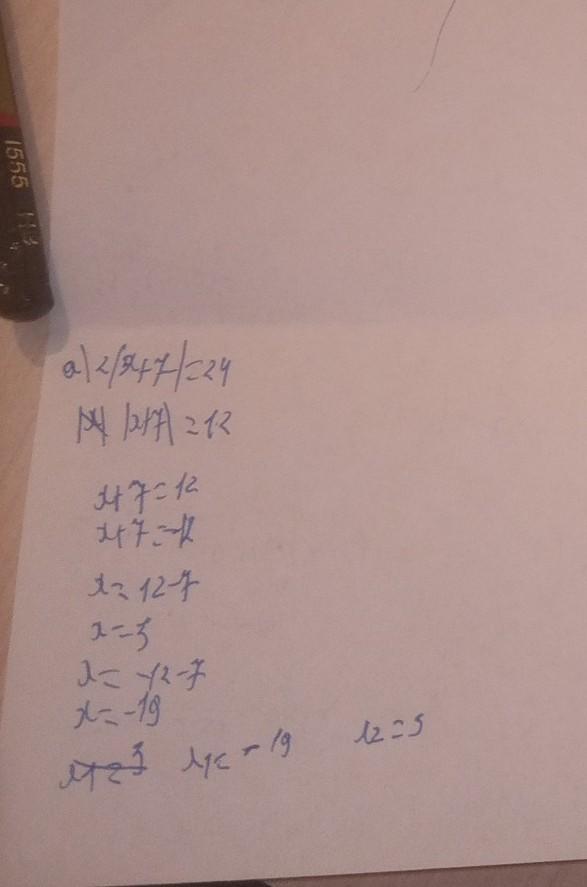 1555 HB
a) 2|x+7|=24
|x+7|=12
x+7=12
x+7=-12
x=12-7
x=5
x=-12-7
x=-19
x1=-19 x2=5